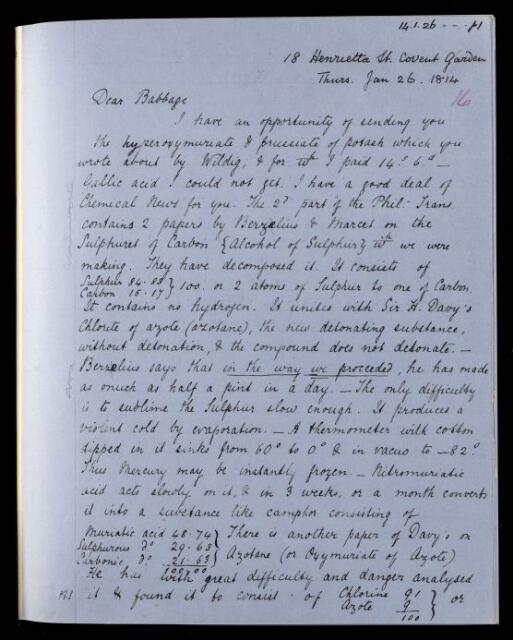 14.1.26 - - - p1
18 Henrietta St. Covent Garden
Thurs. Jan 26. 1814
16
Dear Babbage
I have an opportunity of sending you
the hyperoxymuriate & prussiate of potash which you
wrote about by Wildig, & for wh I paid 14.s 6.d —
Gallic acid I could not get. I have a good deal of
Chemical News for you. The 2d part of the Phil. Trans.
contains 2 papers by Berzelius & Marcet on the
Sulphuret of Carbon {Alcohol of Sulphur} wh we were
making. They have decomposed it. It consists of
Sulphur 84.83
Carbon 15.17 } 100. or 2 atoms of Sulphur to one of Carbon.
It contains no hydrogen. It unites with Sir H. Davy's
Chlorite of azote (azotane), the new detonating substance,
without detonation, & the compound does not detonate. —
Berzelius says that in the way we proceeded, he has made
as much as half a pint in a day. — The only difficulty
is to sublime the Sulphur slow enough. It produces a
violent cold by evaporation. — A thermometer with cotton
dipped in it sinks from 60° to 0° & in vacuo to —82.°
Thus Mercury may be instantly frozen. — Nitromuriatic
acid acts slowly on it, & in 3 weeks, or a month converts
it into a substance like camphor consisting of
Muriatic acid 48.74
Sulphurous do 29.63
Carbonic do 21.63
100.00
} There is another paper of Davy's on
Azotane (or Oxymuriate of Azote)
He has with great difficulty and danger analysed
it & found it to consist of Chlorine 91
Azote 9
100 } or